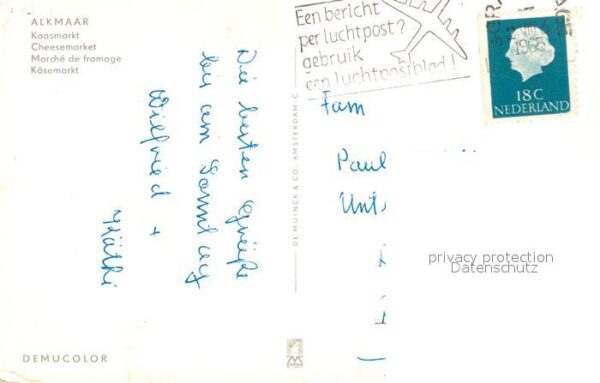 ALKMAAR
Kaasmarkt
Cheesemarket
Marché de fromage
Käsemarkt
Die besten Grüße
bis am Sonntag
Wilfried +
Käthi
DEMUCOLOR
DE MUINCK & CO. AMSTERDAM C.
Een bericht
per luchtpost?
gebruik
een luchtpostblad!
1965
18 C
NEDERLAND
Fam
Paul
Unt.
privacy protection
Datenschutz